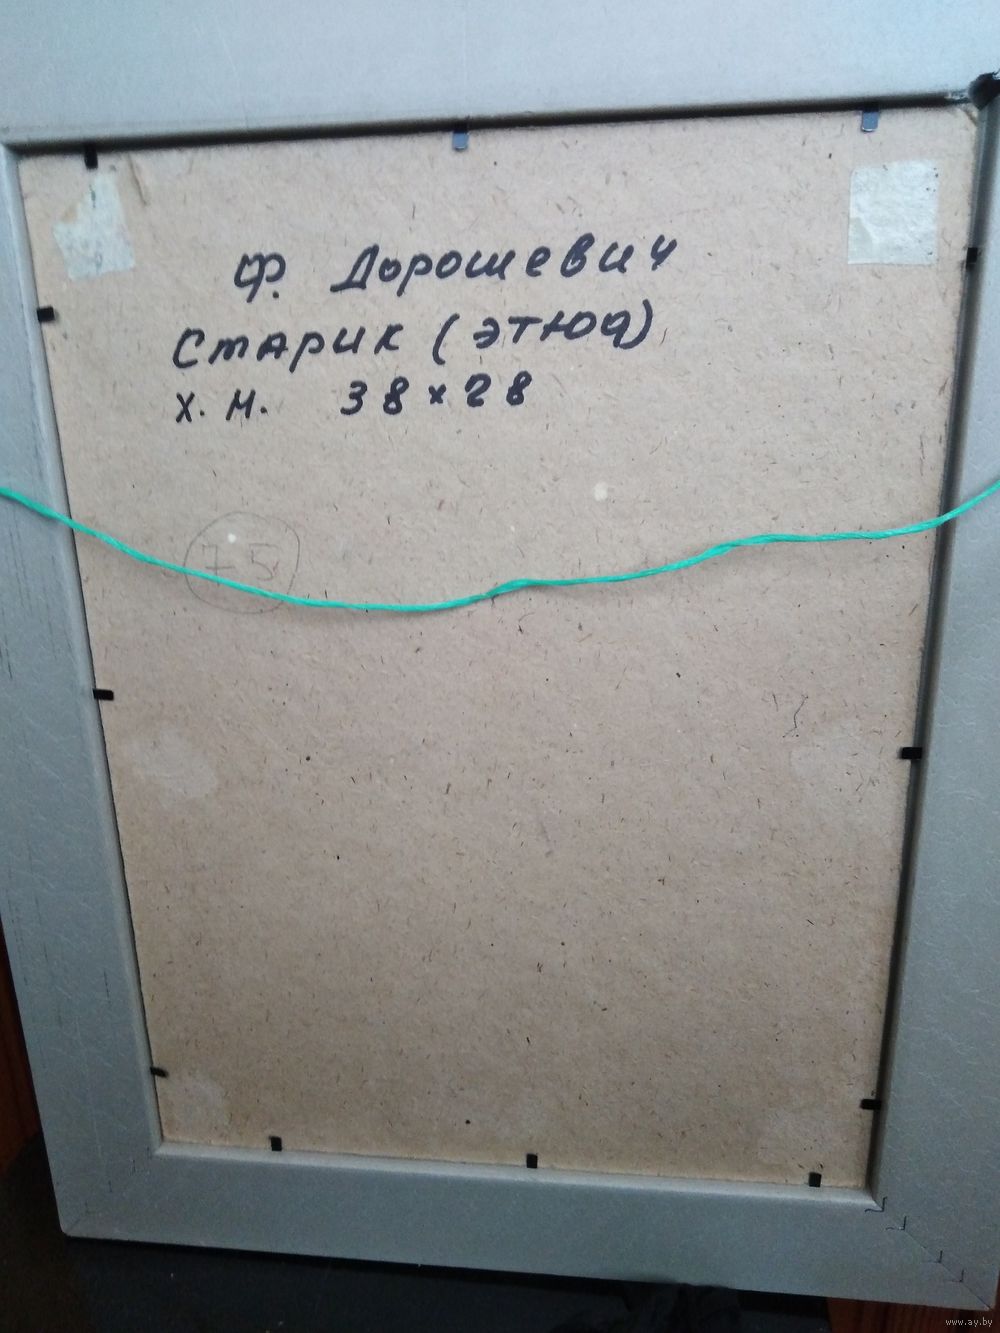 Ф. Дорошевич
Старик (этюд)
х. м. 38 × 28
75
www.ay.by